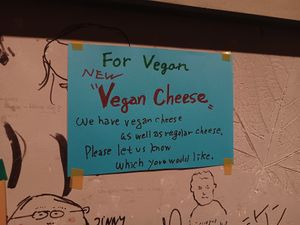 For Vegan
NEW
"Vegan Cheese"
We have vegan cheese
as well as regular cheese.
Please let us know
which you would like.
JINNY